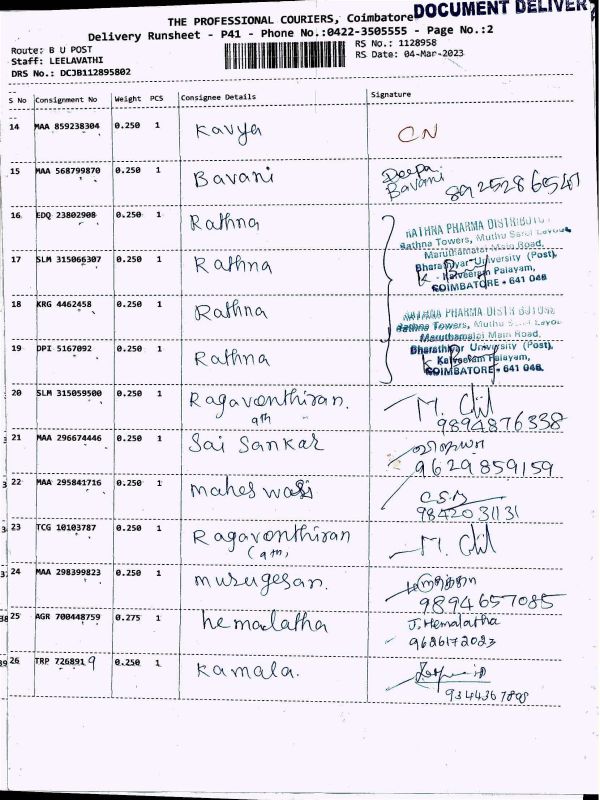 DOCUMENT DELIVER
THE PROFESSIONAL COURIERS, Coimbatore
Delivery Runsheet - P41 - Phone No.:0422-3505555 - Page No.:2
Route: B U POST
Staff: LEELAVATHI
DRS No.: DCJB112895802
RS No.: 1128958
RS Date: 04-Mar-2023
S No Consignment No Weight PCS Consignee Details Signature
14 MAA 859238304 0.250 1 Kavya CN
15 MAA 568799870 0.250 1 Bavani Deepa Bavani 8925286547
16 EDQ 23802908 0.250 1 Rathna
RATHNA PHARMA DISTRIBUTO
Rathna Towers, Muthu Layou
Maruthamalai Main Road,
Bharathiyar University (Post),
Kalveeram Palayam,
COIMBATORE - 641 046
17 SLM 315066307 0.250 1 Rathna
18 KRG 4462458 0.250 1 Rathna
RATHNA PHARMA DISTRIBUTO
Rathna Towers, Muthu Layou
Maruthamalai Main Road,
Bharathiyar University (Post),
Kalveeram Palayam,
COIMBATORE - 641 046
19 DPI 5167092 0.250 1 Rathna
20 SLM 315059500 0.250 1 Ragavonthiran. 9th 9894876338
21 MAA 296674446 0.250 1 Sai Sankar 9629859159
22 MAA 295841716 0.250 1 maheswari C.S.M 9842031131
23 TCG 10103787 0.250 1 Ragavonthiran (9th)
24 MAA 298399823 0.250 1 murugesan. 9894657085
25 AGR 700448759 0.275 1 hemalatha J. Hemalatha 9626172023
26 TRP 7268919 0.250 1 Kamala. 9344367898